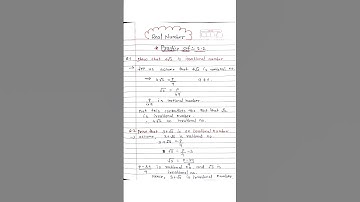 Real Number
→ Practice set - 2.2
Q.1 Show that 4√2 is irrational number.
→ let us assume that 4√2 is rational no.
→ 4√2 = p/q
√2 = p/4q
is rational number
But this contradicts the fact that √2
is irrational number.
∴ 4√2 is irrational no.
Q.2 Prove that 3+√5 is an irrational number.
→ assume, 3+√5 is rational no
3+√5 = p/q
√5 = p/q - 3
√5 = p-3q/q
is rational no and √5 is
irrational no.
Hence, 3+√5 is irrational number.